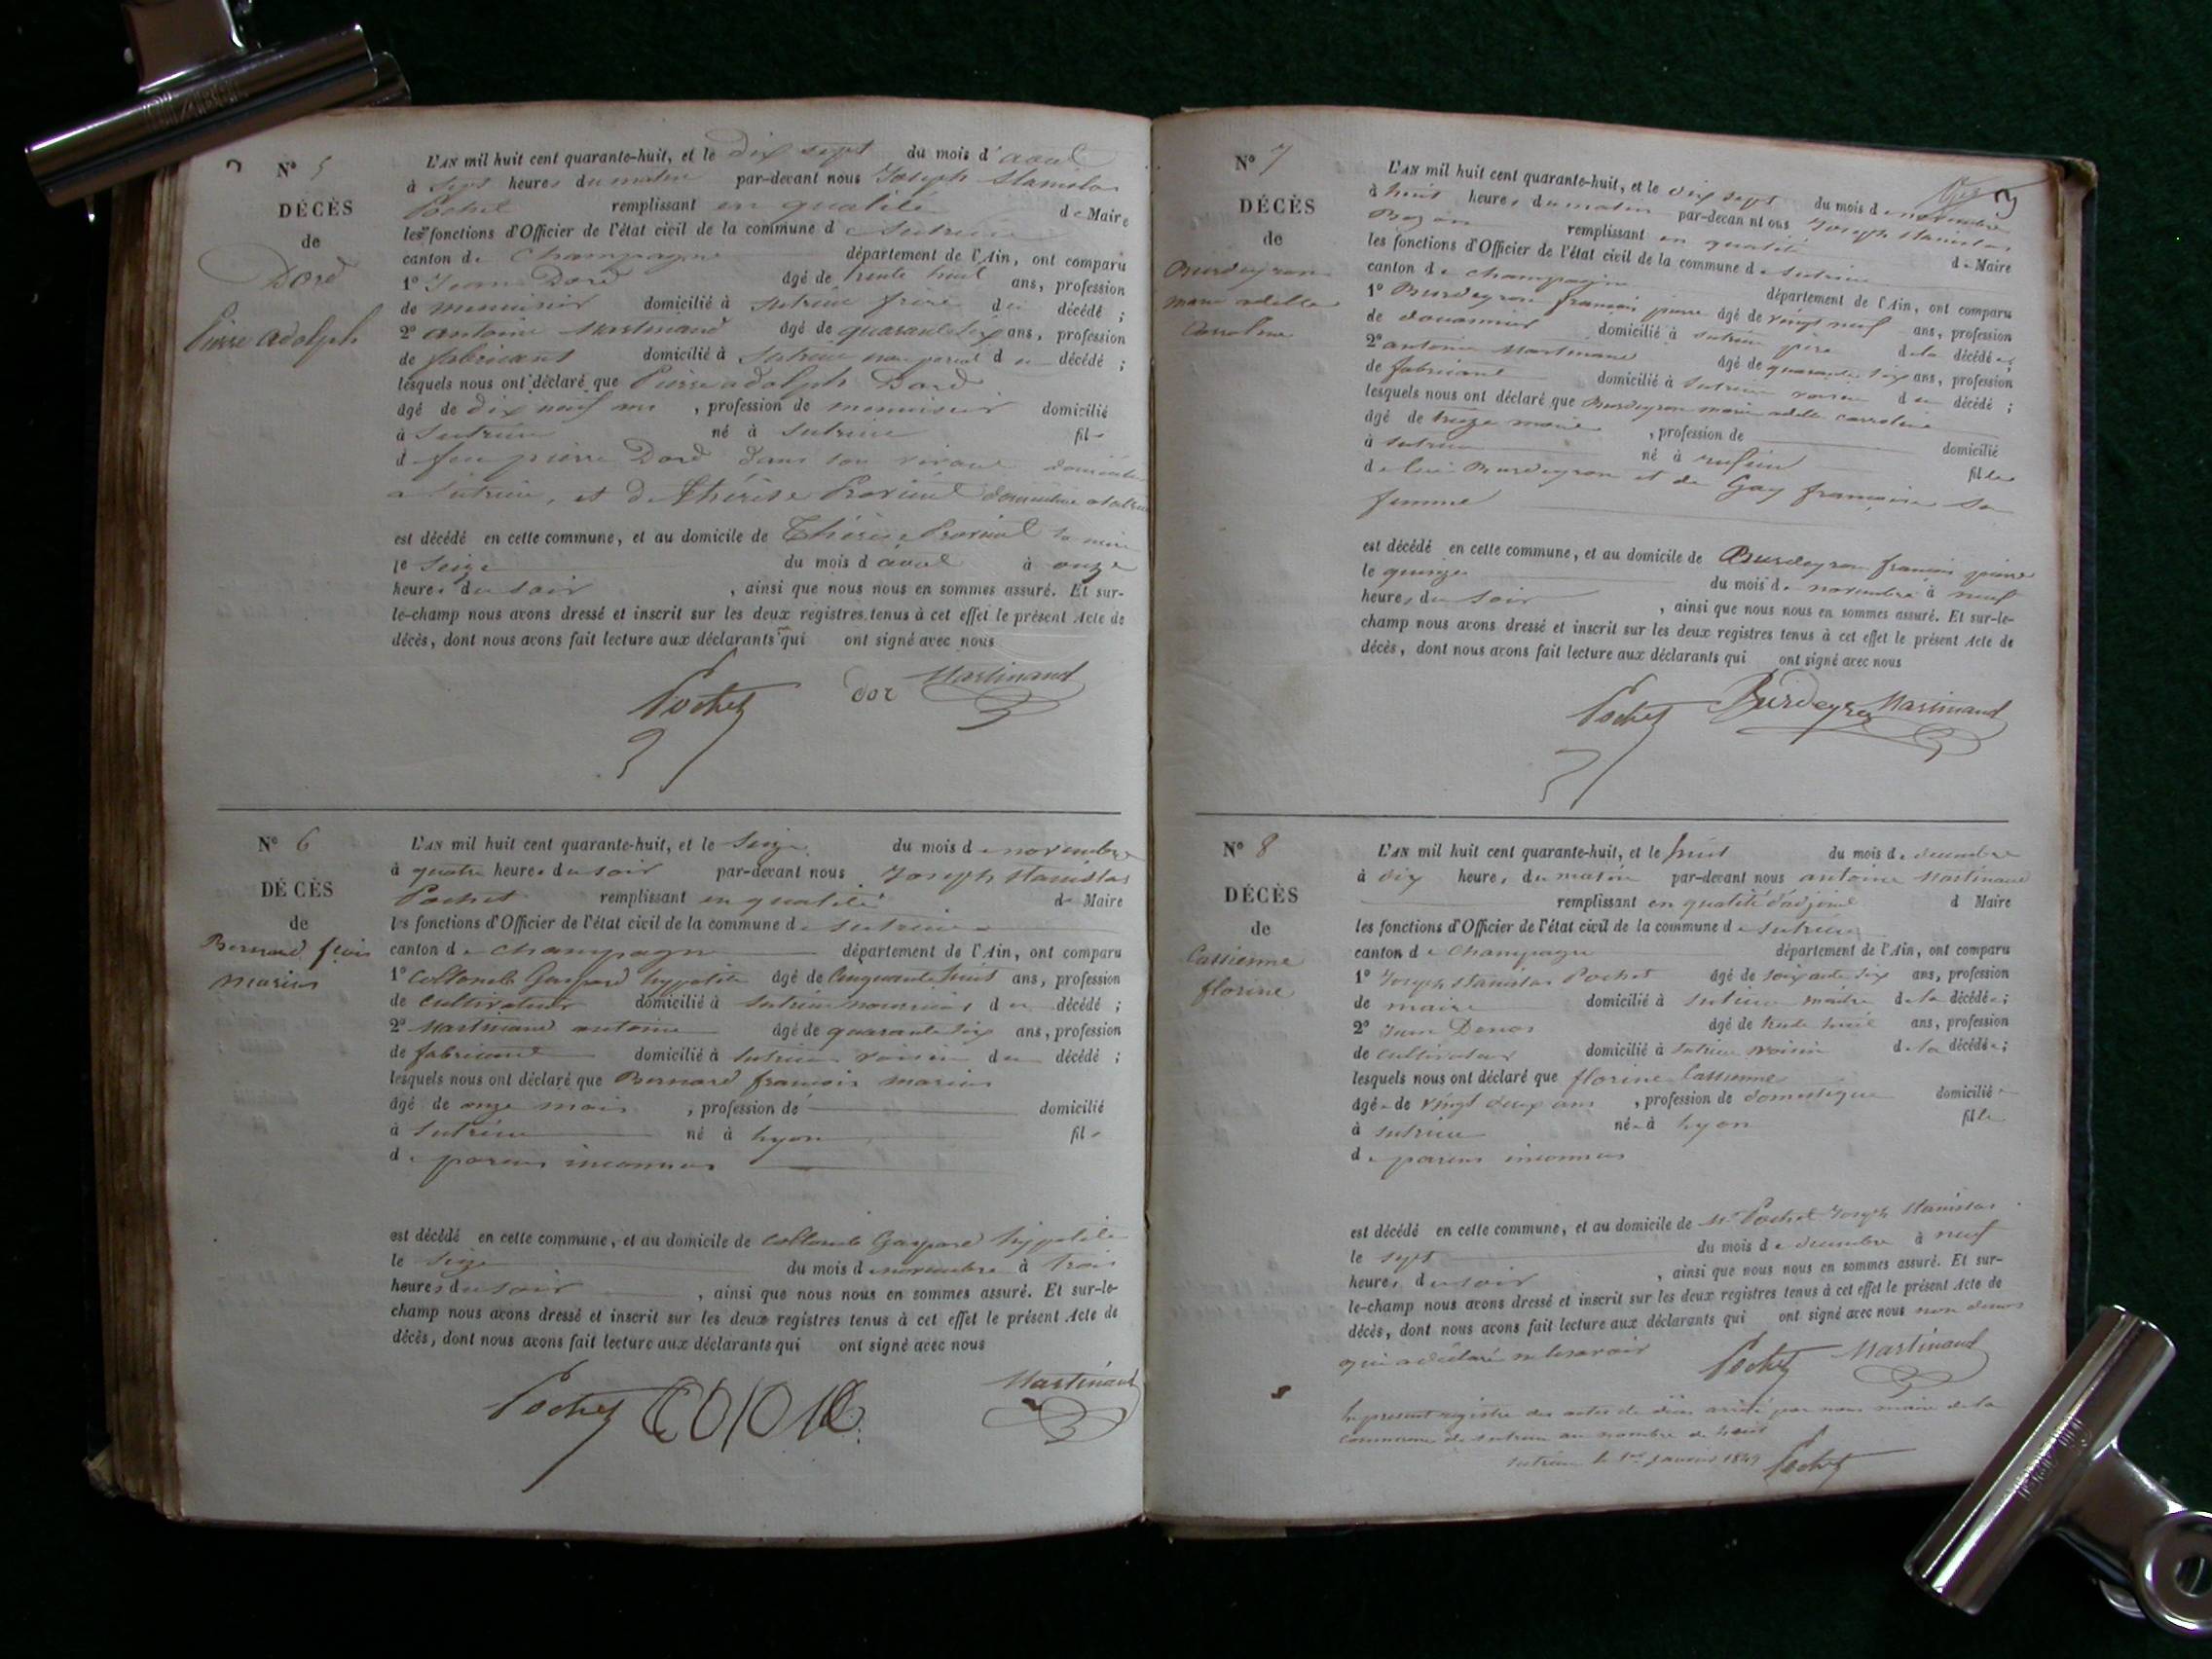 N° 5
DÉCÈS
de
Dord
Pierre adolph
L'AN mil huit cent quarante-huit, et le dix sept du mois d'aout
à sept heures du matin par-devant nous Joseph Stanislas
Pochet remplissant en qualité de Maire
les fonctions d'Officier de l'état civil de la commune d sutrieu
canton de Champagne département de l'Ain, ont comparu
1° Jean Dord âgé de trente huit ans, profession
de menuisier domicilié à sutrieu frère du décédé ;
2° antoine Martinand âgé de quarante six ans, profession
de fabricant domicilié à sutrieu non parent du décédé ;
lesquels nous ont déclaré que Pierre adolph Dord
âgé de dix neuf ans , profession de menuisier domicilié
à sutrieu né à sutrieu fils
d feu pierre Dord dans son vivant domicilié
à sutrieu, et de thérèse domiciliée
est décédé en cette commune, et au domicile de Thérèse sa mère
le seize du mois d aout à onze
heures du soir , ainsi que nous nous en sommes assuré. Et sur-
le-champ nous avons dressé et inscrit sur les deux registres tenus à cet effet le présent Acte de
décès, dont nous avons fait lecture aux déclarants qui ont signé avec nous
Pochet dor Martinand
N° 6
DÉCÈS
de
Bernard
marius
L'AN mil huit cent quarante-huit, et le seize du mois de novembre
à quatre heures du soir par-devant nous Joseph Stanislas
Pochet remplissant en qualité de Maire
les fonctions d'Officier de l'état civil de la commune de sutrieu
canton de champagne département de l'Ain, ont comparu
1° Collomb Gaspard hyppolite âgé de cinquante huit ans, profession
de cultivateur domicilié à sutrieu du décédé ;
2° Martinand antoine âgé de quarante six ans, profession
de fabricant domicilié à sutrieu voisin du décédé ;
lesquels nous ont déclaré que Bernard françois marius
âgé de onze mois , profession de domicilié
à sutrieu né à lyon fils
de parens inconnus
est décédé en cette commune, et au domicile de collomb Gaspard hyppolite
le seize du mois de novembre à trois
heures du soir , ainsi que nous nous en sommes assuré. Et sur-le-
champ nous avons dressé et inscrit sur les deux registres tenus à cet effet le présent Acte de
décès, dont nous avons fait lecture aux déclarants qui ont signé avec nous
Pochet Martinand
3
N° 7
DÉCÈS
de
Burdeyron
marie adelle
Carroline
L'AN mil huit cent quarante-huit, et le dix sept du mois de novembre
à huit heures du matin par-devant nous Joseph Stanislas
remplissant en qualité de Maire
les fonctions d'Officier de l'état civil de la commune de sutrieu
canton de champagne département de l'Ain, ont comparu
1° Burdeyron françois pierre âgé de vingt neuf ans, profession
de douannier domicilié à sutrieu père de la décédée ;
2° antoine Martinand âgé de quarante six ans, profession
de fabricant domicilié à sutrieu voisin du décédé ;
lesquels nous ont déclaré que Burdeyron marie adelle carroline
âgé de treize mois , profession de domicilié
à sutrieu né à fille
de lui Burdeyron et de Gay françoise sa
femme
est décédé en cette commune, et au domicile de Burdeyron françois pierre
le quinze du mois de novembre à neuf
heures du soir , ainsi que nous nous en sommes assuré. Et sur-le-
champ nous avons dressé et inscrit sur les deux registres tenus à cet effet le présent Acte de
décès, dont nous avons fait lecture aux déclarants qui ont signé avec nous
Pochet Burdeyron Martinand
N° 8
DÉCÈS
de
Cassienne
florine
L'AN mil huit cent quarante-huit, et le huit du mois de decembre
à dix heures du matin par-devant nous antoine Martinand
remplissant en qualité d'adjoint d Maire
les fonctions d'Officier de l'état civil de la commune de sutrieu
canton de Champagne département de l'Ain, ont comparu
1° Joseph Stanislas Pochet âgé de soixante six ans, profession
de maire domicilié à sutrieu maitre de la décédée ;
2° Jean Denos âgé de trente huit ans, profession
de cultivateur domicilié à sutrieu voisin de la décédée ;
lesquels nous ont déclaré que florine Cassienne
âgée de vingt deux ans , profession de domestique domiciliée
à sutrieu née à lyon fille
de parens inconnus
est décédé en cette commune, et au domicile de Mr Pochet Joseph Stanislas
le sept du mois de decembre à neuf
heures du soir , ainsi que nous nous en sommes assuré. Et sur-
le-champ nous avons dressé et inscrit sur les deux registres tenus à cet effet le présent Acte de
décès, dont nous avons fait lecture aux déclarants qui ont signé avec nous non denos
qui a déclaré ne le savoir Pochet Martinand
le present registre des actes de décès arrêté par nous maire de la
commune de sutrieu au nombre de huit
sutrieu le 1er janvier 1849 Pochet